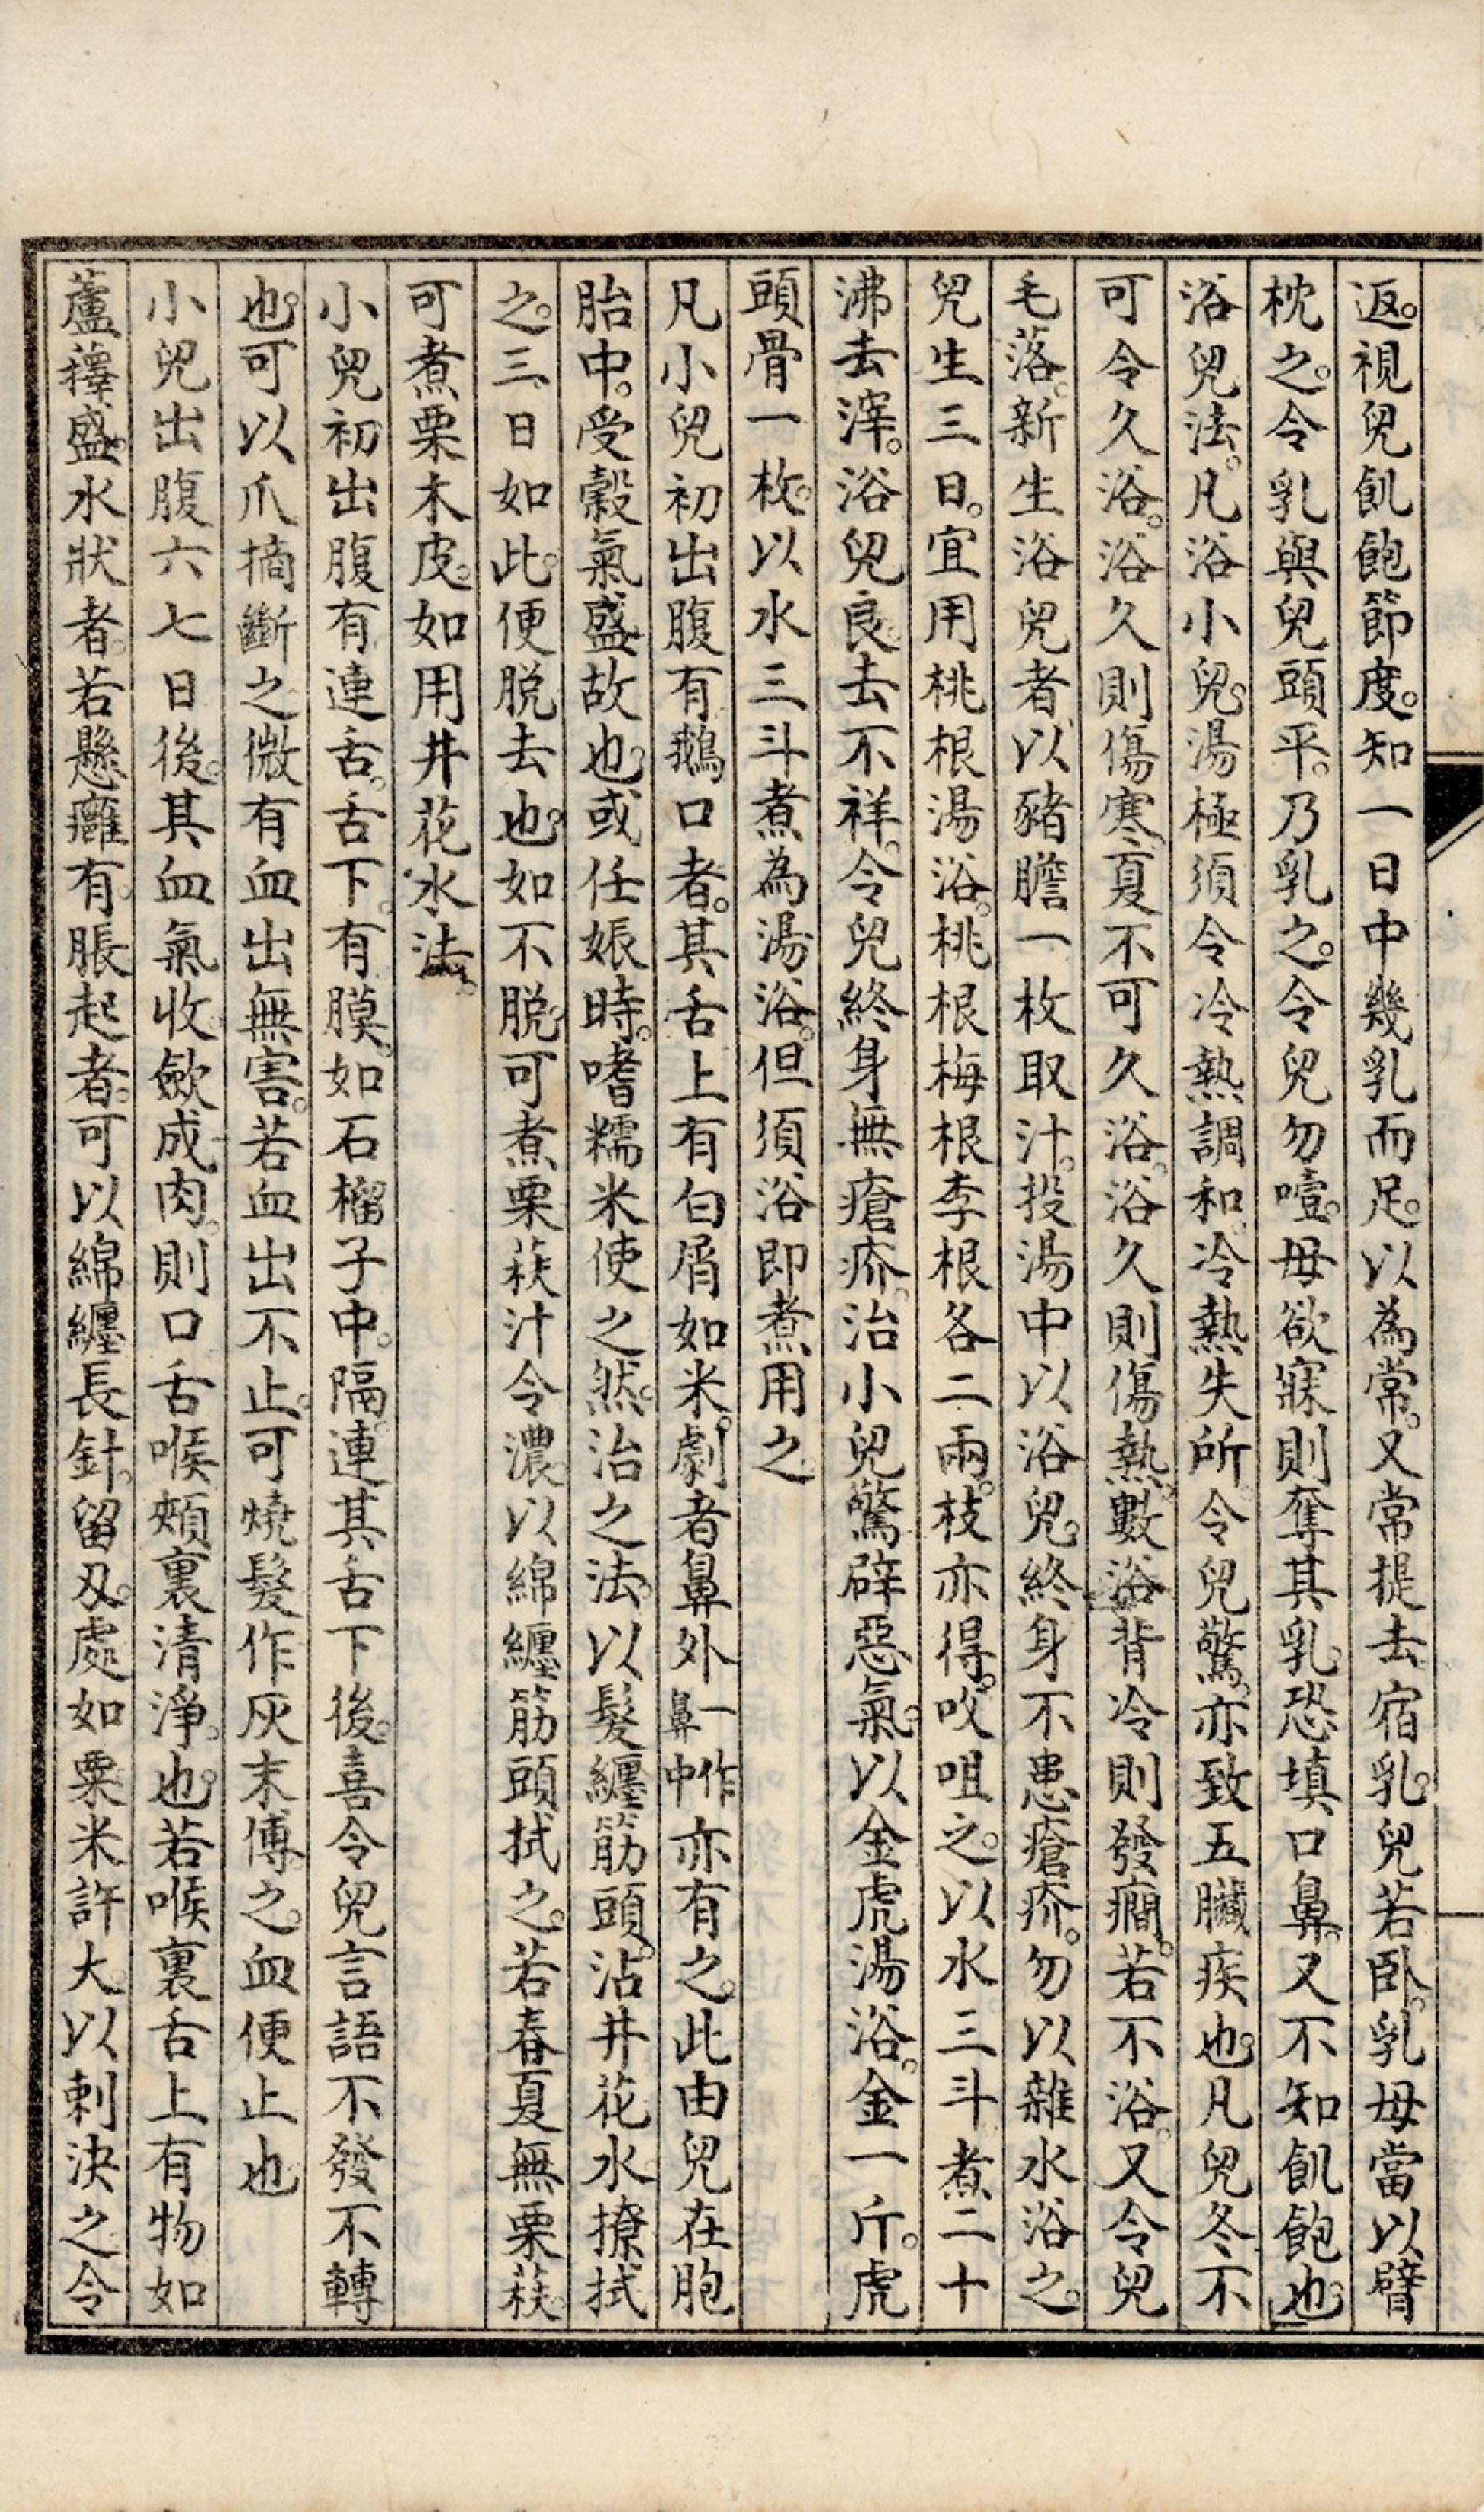 返。視兒飢飽節度。知一日中幾乳而足。以為常。又常提去宿乳。兒若卧。乳母當以臂
枕之。令乳與兒頭平。乃乳之。令兒勿噎。母欲寐則奪其乳。恐填口鼻。又不知飢飽也。
浴兒法。凡浴小兒。湯極須令冷熱調和。冷熱失所。令兒驚。亦致五臟疾也。凡兒冬不
可令久浴。浴久則傷寒。夏不可久浴。浴久則傷熱。數浴背冷則發癇。若不浴。又令兒
毛落。新生浴兒者以豬膽一枚取汁。投湯中以浴兒。終身不患瘡疥。勿以雜水浴之。
兒生三日。宜用桃根湯浴。桃根梅根李根各二兩。枝亦得。㕮咀之。以水三斗煮二十
沸去滓。浴兒良。去不祥。令兒終身無瘡疥。治小兒驚辟惡氣。以金虎湯浴。金一斤。虎
頭骨一枚。以水三斗煮為湯浴。但須浴即煮用之
凡小兒初出腹有鵝口者。其舌上有白屑如米。劇者鼻外一作鼻中亦有之。此由兒在胞
胎中。受穀氣盛故也。或任娠時。嗜糯米使之然。治之法。以髮纏筋頭。沾井花水撩拭
之。三日如此。便脫去也。如不脫。可煮栗蒺汁令濃。以綿纏筋頭拭之。若春夏無栗蒺。
可煮栗木皮。如用井花水法。
小兒初出腹有連舌。舌下。有膜。如石榴子中。隔連其舌下後。喜令兒言語不發不轉
也。可以爪摘斷之微有血出無害。若血出不止。可燒髮作灰末傅之。血便止也
小兒出腹六七日後。其血氣收歛成肉。則口舌喉頰裏清淨。也。若喉裏舌上有物如
蘆籜盛。水狀者。若懸癰有。脹起者。可以綿纏長針。留刄。處如粟米許大以刺決之令